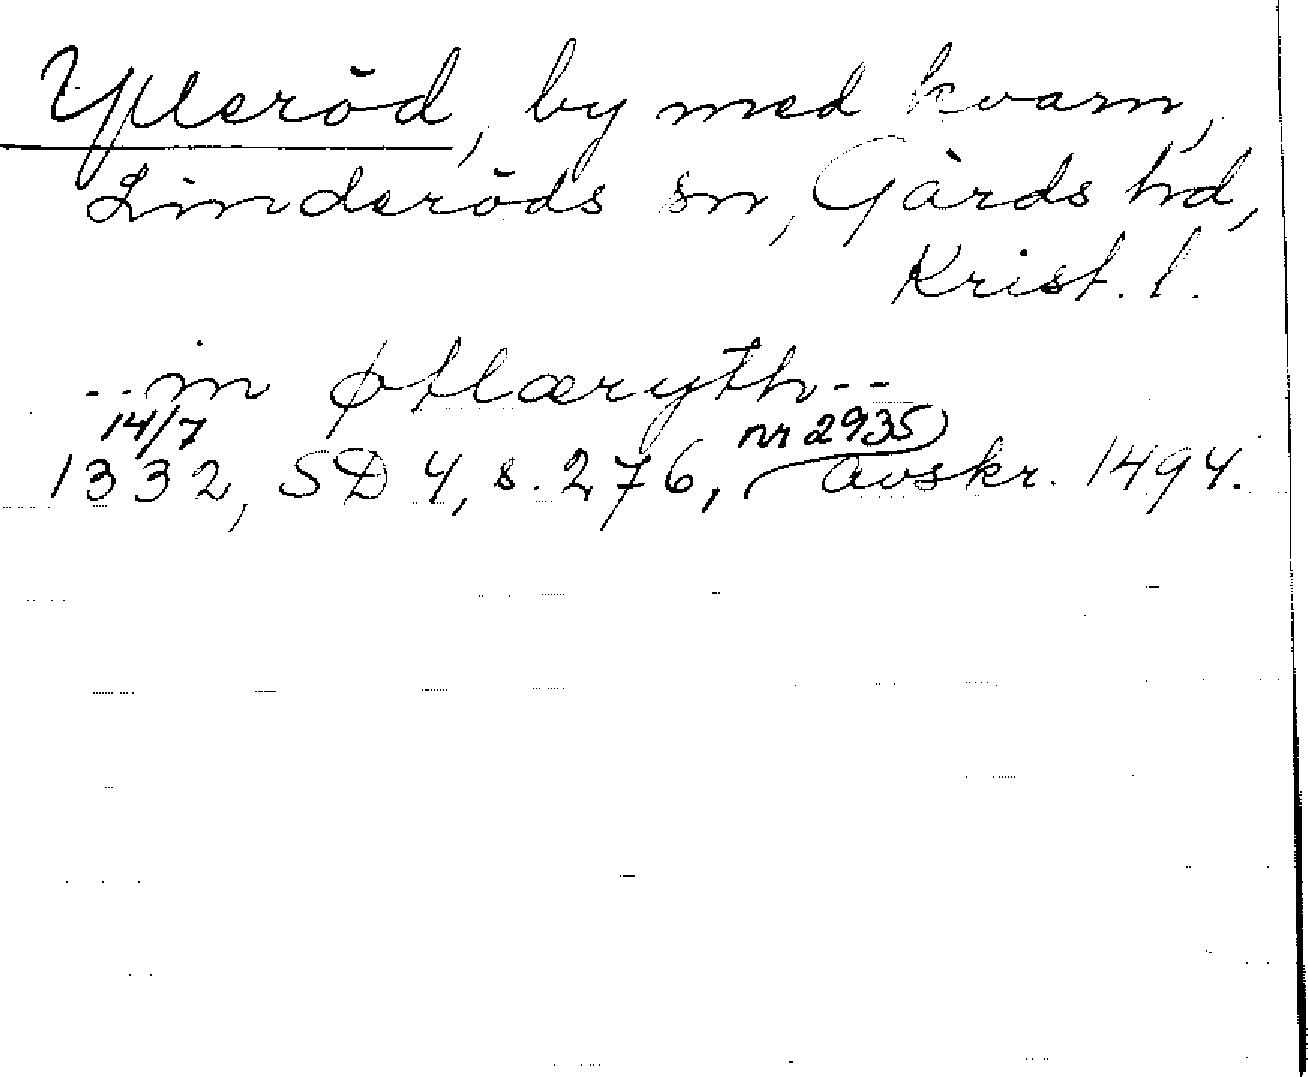 Ylleröd, by med kvarn,
Linderöds sn, Gärds hd,
Krist. l.
-- in øtlæryth --
14/7 nr 2935
1332, SD 4, s. 276, avskr. 1494.